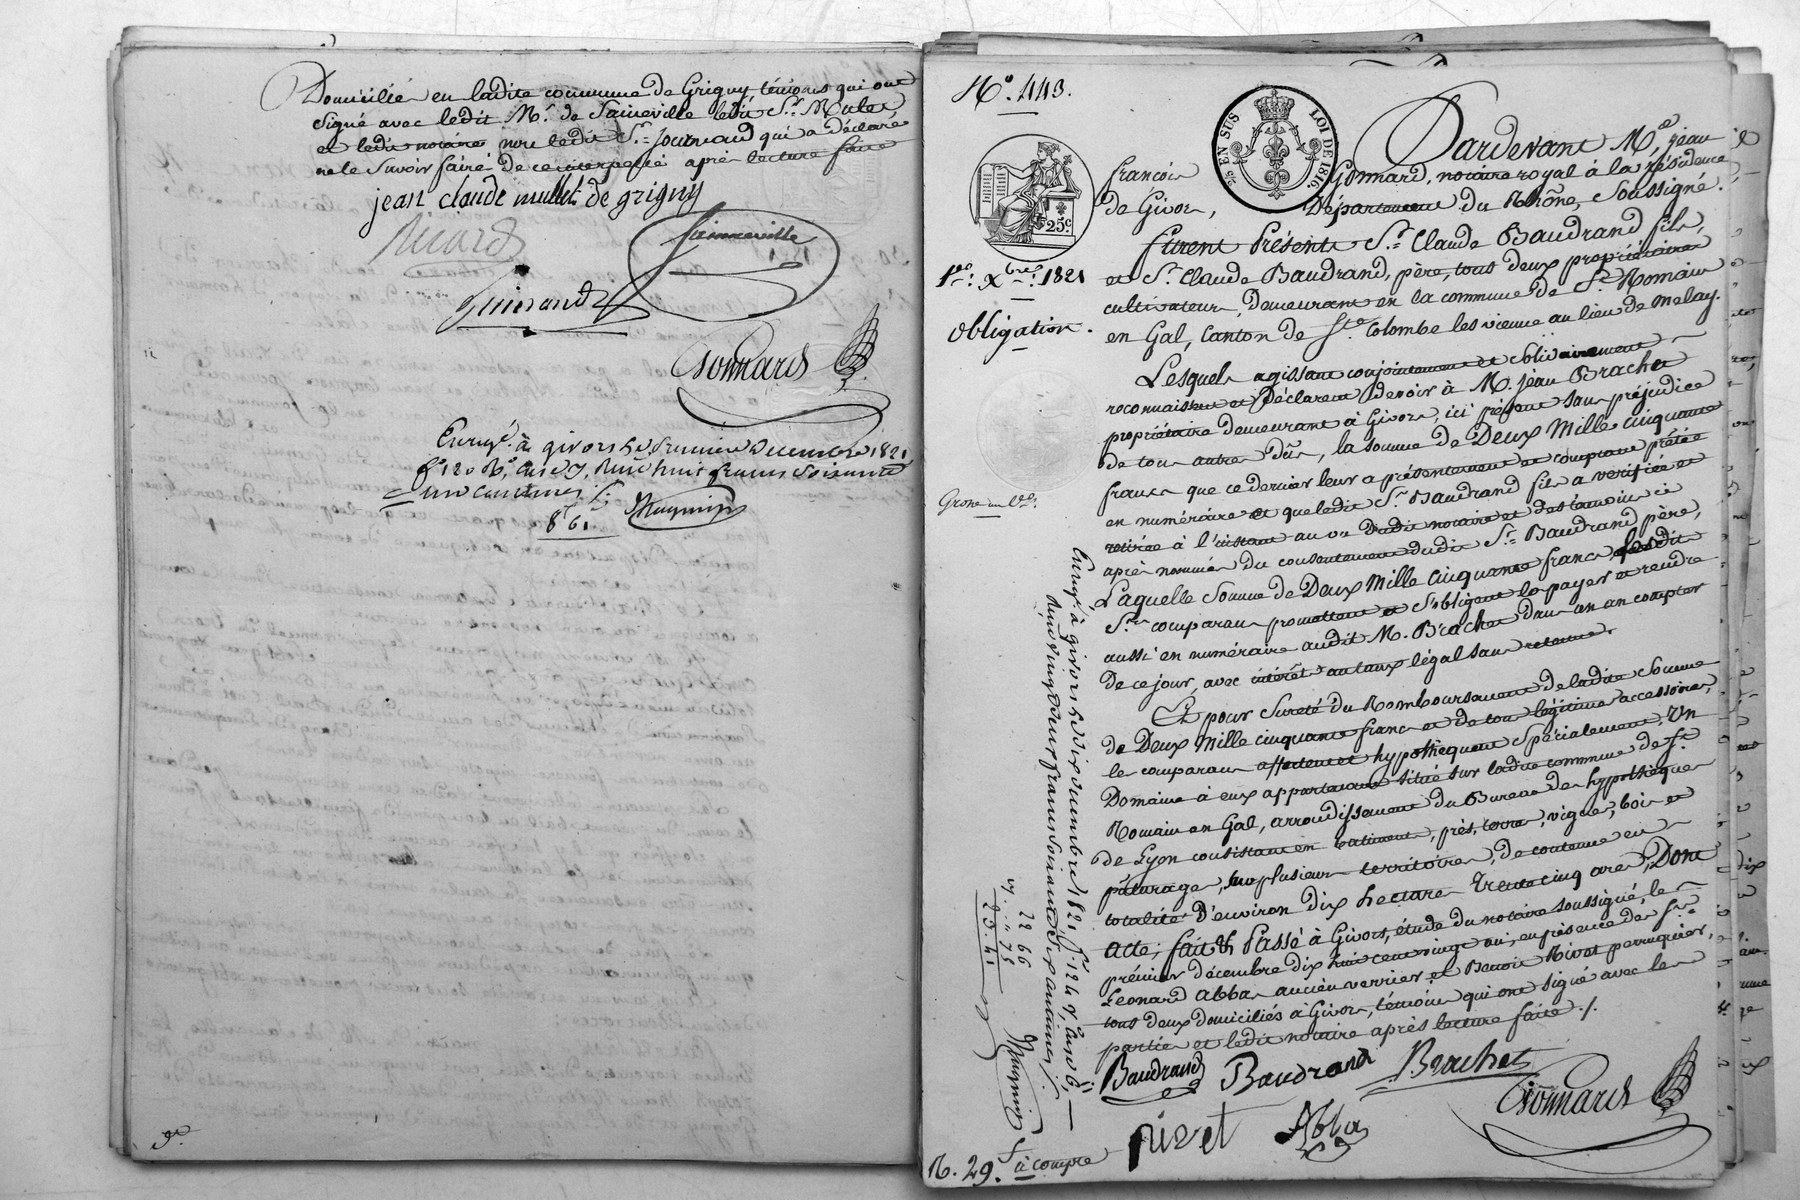 Domiciliés en ladite commune de Grigny, témoins qui ont
signé avec ledit Mr. de Jainneville ledit Sr. Mulet
et ledit notaire non ledit Sr. Journaud qui a déclaré
ne le savoir faire de ce interpellé après lecture faite
jean claude mulet de grigny
Ricard
Jainneville
Guinand
Gonnard
Enregé. à givors le premier décembre 1821
fo. 120 Ro. case 7, Reçu huit francs soixante
un centimes
8 61
No. 443.
EN SUS LOI DE 1816.
25c
1er. Xbre. 1821
obligation.
Grosse
Pardevant Me. jean
françois Gonnard, notaire royal à la résidence
de Givors, Département du Rhône, soussigné.
furent Présents Sr. Claude Baudrand fils,
et Sr. Claude Baudrand, père, tous deux propriétaires
cultivateurs, demeurant en la commune de St. Romain
en Gal, Canton de Ste. Colombe les vienne au lieu de Melay.
Lesquels agissant conjointement et solidairement
reconnaissent et Déclarent Devoir à M. jean Brachet
propriétaire demeurant à Givors, ici présent sans préjudice
de tous autres dûs, la somme de Deux Mille cinquante
francs que ce dernier leur a présentement et comptant prêtée
en numéraire et que ledit Sr. Baudrand fils a vérifiée et
retirée à l'instant au vu Dudit notaire et des témoins ci
après nommés du consentement dudit Sr. Baudrand père,
Laquelle somme de Deux Mille cinquante francs lesdits
Srs. comparans promettent et s'obligent la payer et rendre
aussi en numéraire audit M. Brachet dans un an compter
De ce jour, avec intérêts au taux légal sans retenue.
Et pour sureté du Remboursement de ladite somme
de Deux Mille cinquante francs et de tous légitimes accessoires,
les comparans affectent et hypothèquent spécialement, Un
Domaine à eux appartenant situé sur ladite commune de St.
Romain en Gal, arrondissement du Bureau des hypothèques
de Lyon consistant en batiments, prés, terres, vignes, bois et
pâturages, sur plusieurs territoires, de contenue en
totalité d'environ dix hectares trente cinq ares, Dont
acte; fait & Passé à Givors, étude du notaire soussigné, le
prémier décembre dix huit cent vingt un; en présence des Srs.
Leonard Abba ancien verrier et Benoit Rivat perruquier,
tous deux domiciliés à Givors, témoins qui ont signé avec les
parties et ledit notaire après lecture faite ./.
Baudrand Baudrand Brachet
Gonnard
rivet Abba
Enregé. à givors le dix décembre 1821, fo. 124 Vo, case 6,
Reçu vingt deux francs soixante six centimes
22 66
75
23. 41
R. 29. f à compte